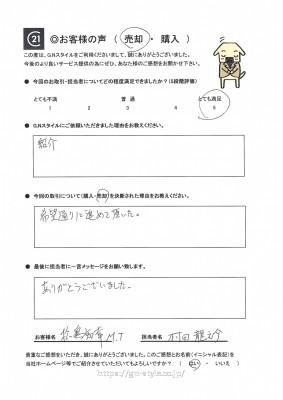 C21 ◎お客様の声（ 売却 ・ 購入 ）
この度は、G.Nスタイルをご利用くださいまして、誠にありがとうございました。
今後のより良いサービス提供の為にぜひ、あなた様のご感想をお聞かせ下さい。
● 今回のお取引・担当者についてどの程度満足できましたか？（5段階評価）
とても不満 普通 とても満足
1 2 3 4 5
● G.Nスタイルにご依頼いただきました理由をお教えください。
紹介
● 今回の取引について（購入・売却）を決断された理由をお教えください。
希望通りに進めて頂いた。
● 最後に担当者に一言メッセージをお願い致します。
ありがとうございました。
お客様名 M.T 担当者名 村田
貴重なご感想をいただき、誠にありがとうございました。このご感想とお名前（イニシャル表記）を
当社ホームページ等でご紹介させていただいてもよろしいですか？ （ はい ・ いいえ ）
https://gn-style.co.jp/